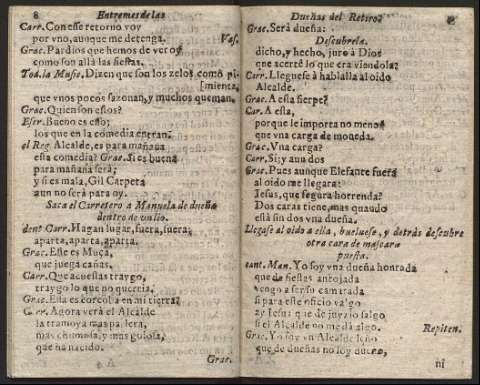 8 Entremes de las
Carr. Con esse retorno voy
por vno, aunque me detenga. Vas.
Grac. Pardios que hemos de ver oy
como son allà las fiestas.
Tod. la Musie. Dizen que son los zelos como pi-
[mienta,
que vnos pocos sazonan, y muchos queman.
Grac. Quien son estos?
Escr. Bueno es esso;
los que en la comedia entran.
el Reg. Alcalde, es para mañana
esta comedia? Grac. Si es buena
para mañana serà;
y si es mala, Gil Carpeta
aun no serà para oy.
Saca el Carretero a Manuela de dueña
dentro de un lio.
dent Carr. Hagan lugar, fuera, fuera,
aparta, aparta, aparta.
Grac. Este es Muça,
que juega cañas.
Carr. Que acuestas traygo,
traygo lo que no querria.
Grac. Essa es corcoba en mi tierra?
Carr. Agora verà el Alcalde
la tramoya mas parlera,
mas chismosa, y mas golosa,
que ha nacido.
Grac.
Dueñas del Retiro?
Grac. Serà dueña:
Descubrela.
dicho, y hecho, juro à Dios
que acertè lo que era viendola?
Carr. Lleguese à hablalla al oido
Alcalde.
Grac. A esta sierpe?
Car. A esta,
porque le importa no menos
que vna carga de moneda.
Grac. Vna carga?
Carr. Si; y aun dos
Grac. Pues aunque Elefante fuera
al oido me llegara:
Jesus, que figura horrenda?
Dos caras tiene, mas quando
està sin dos vna dueña.
Llegase al oido a ella, buelvese, y detràs descubre
otra cara de mascara
puesta.
cant. Man. Yo soy vna dueña honrada
que de fiestas antojada
vengo a ser su camarada
si para este oficio valgo
ay Jesus que de juyzio salgo
si el Alcalde no me dà algo. Repiten.
Grac. Yo soy vn Alcalde leño
que de dueñas no soy dueño,
ni